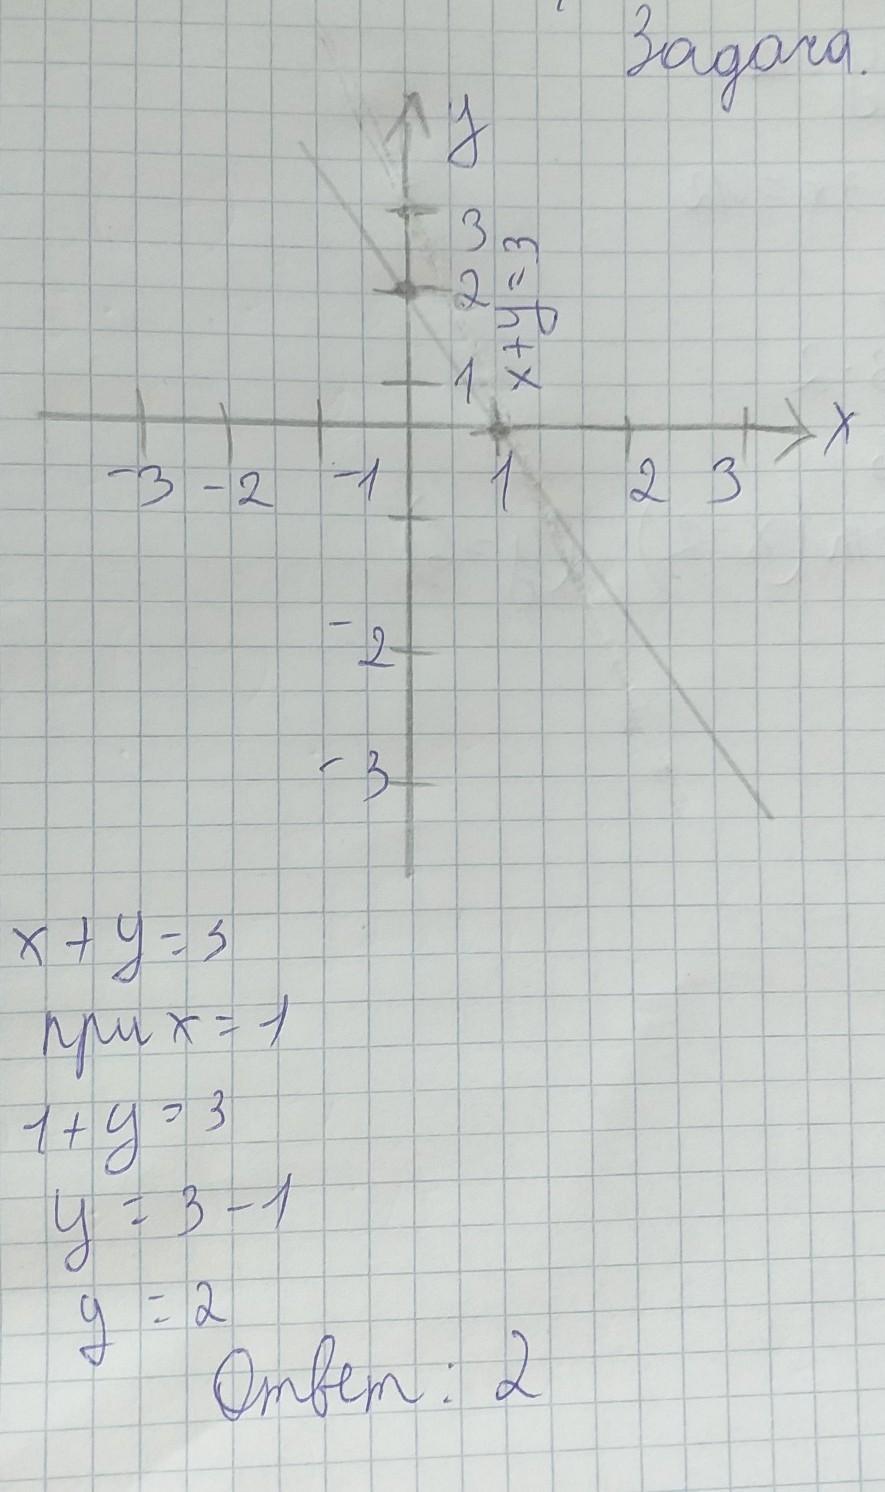 Задача.
y
3
2
1
x+y=3
x
-3 -2 -1 1 2 3
-2
-3
x+y=3
при x=1
1+y=3
y=3-1
y=2
Ответ: 2